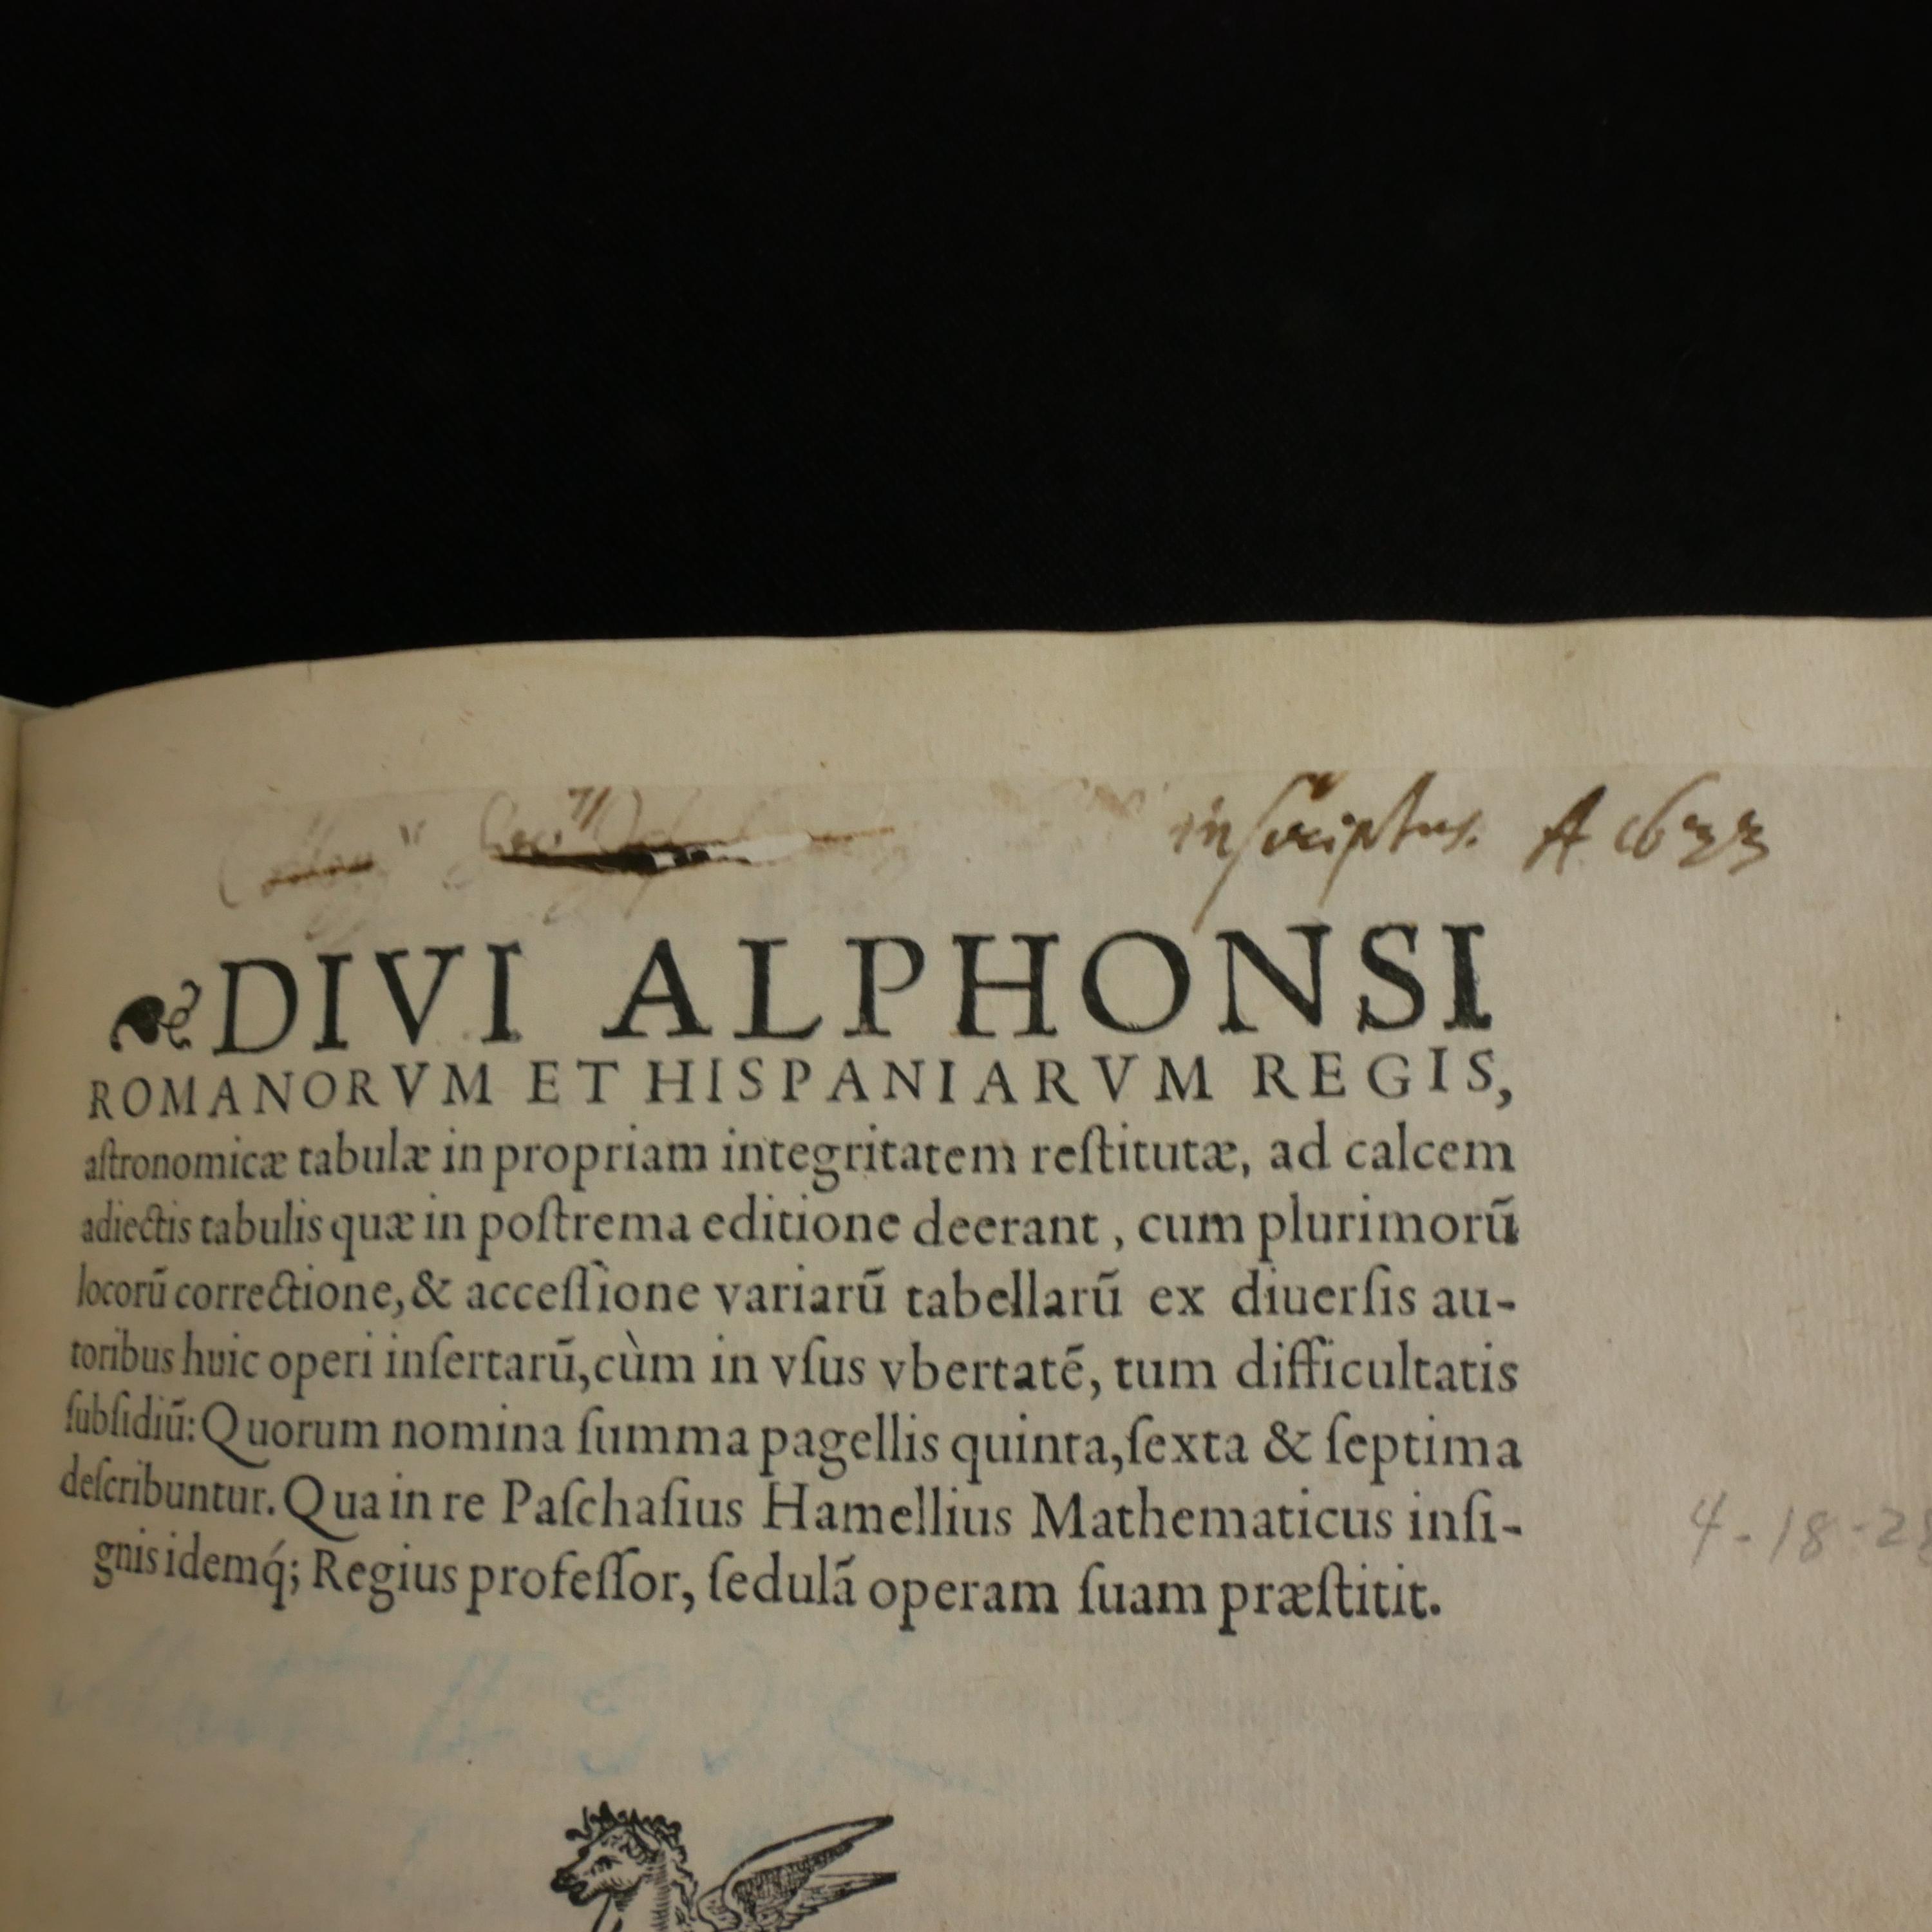 inscriptus. A 1633
DIVI ALPHONSI
ROMANORVM ET HISPANIARVM REGIS,
aſtronomicæ tabulæ in propriam integritatem reſtitutæ, ad calcem
adiectis tabulis quæ in poſtrema editione deerant, cum plurimorū
locorū correctione, & acceſſione variarū tabellarū ex diuerſis au-
toribus huic operi inſertarū, cùm in vſus vbertatē, tum difficultatis
ſubſidiū: Quorum nomina ſumma pagellis quinta, ſexta & ſeptima
deſcribuntur. Qua in re Paſchaſius Hamellius Mathematicus inſi-
gnis idemq́; Regius profeſſor, ſedulā operam ſuam præſtitit.
4-18-28